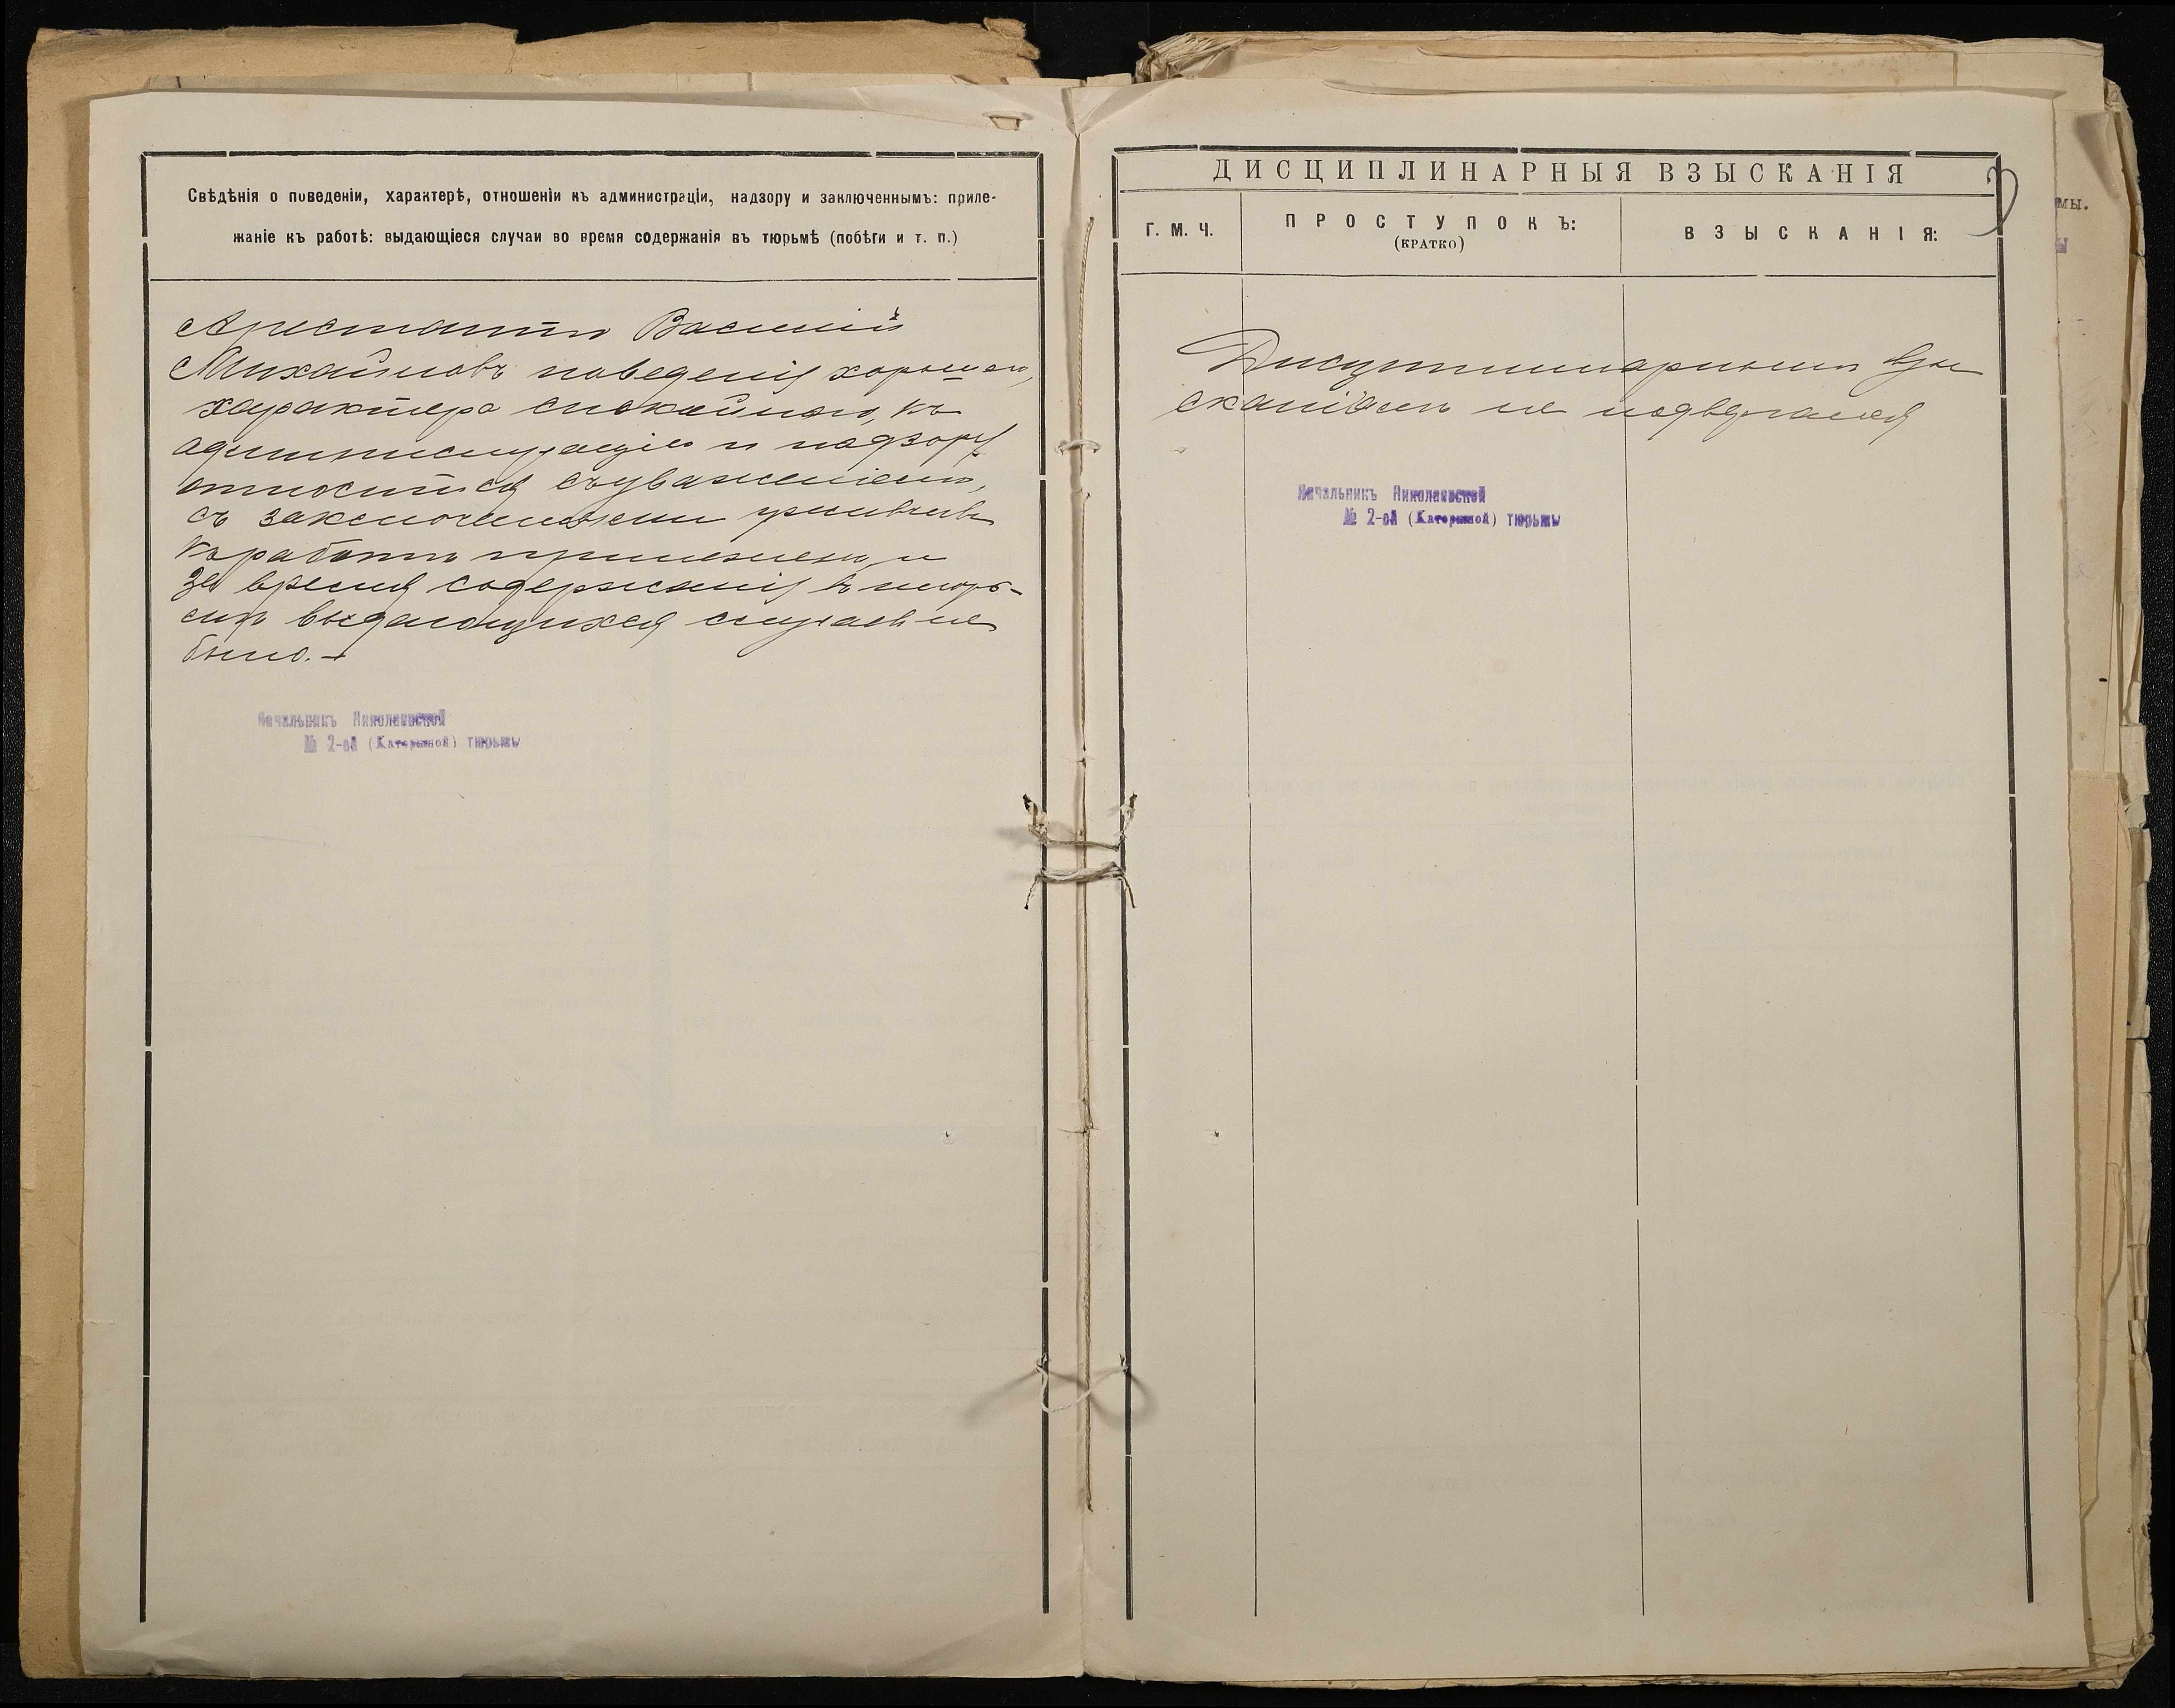 Свѣдѣнія о поведеніи, характерѣ, отношеніи къ администраціи, надзору и заключеннымъ: приле-
жаніе къ работѣ: выдающіеся случаи во время содержанія въ тюрьмѣ (побѣги и т. п.)
Арестантъ Василій
Михайловъ поведенія хорошаго,
характера спокойнаго, къ
администраціи и надзору
относится съ уваженіемъ,
съ заключенными уживчивъ
къ работѣ прилеженъ, и
за время содержанія въ тюрь-
мѣ выдающихся случаевъ не
было. —
Начальникъ Николаевской
№ 2-ой (Каторжной) тюрьмы
ДИСЦИПЛИНАРНЫЯ ВЗЫСКАНІЯ
Г. М. Ч.
ПРОСТУПОКЪ:
(КРАТКО)
ВЗЫСКАНІЯ:
Дисциплинарнымъ взы
сканіямъ не подвергался
Начальникъ Николаевской
№ 2-ой (Каторжной) тюрьмы
мы.